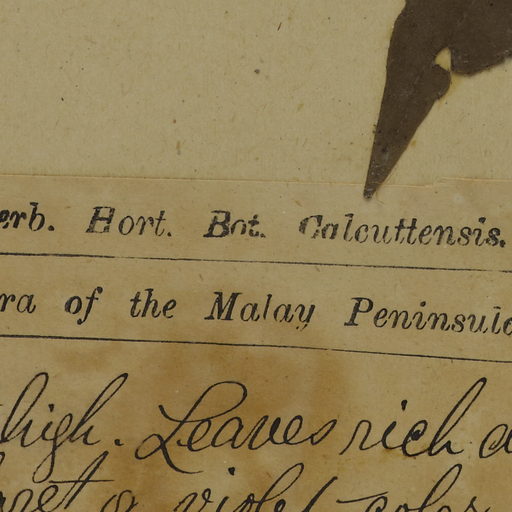 erb. Hort. Bot. Calcuttensis.
ra of the Malay Peninsula
high. Leaves rich
a violet color